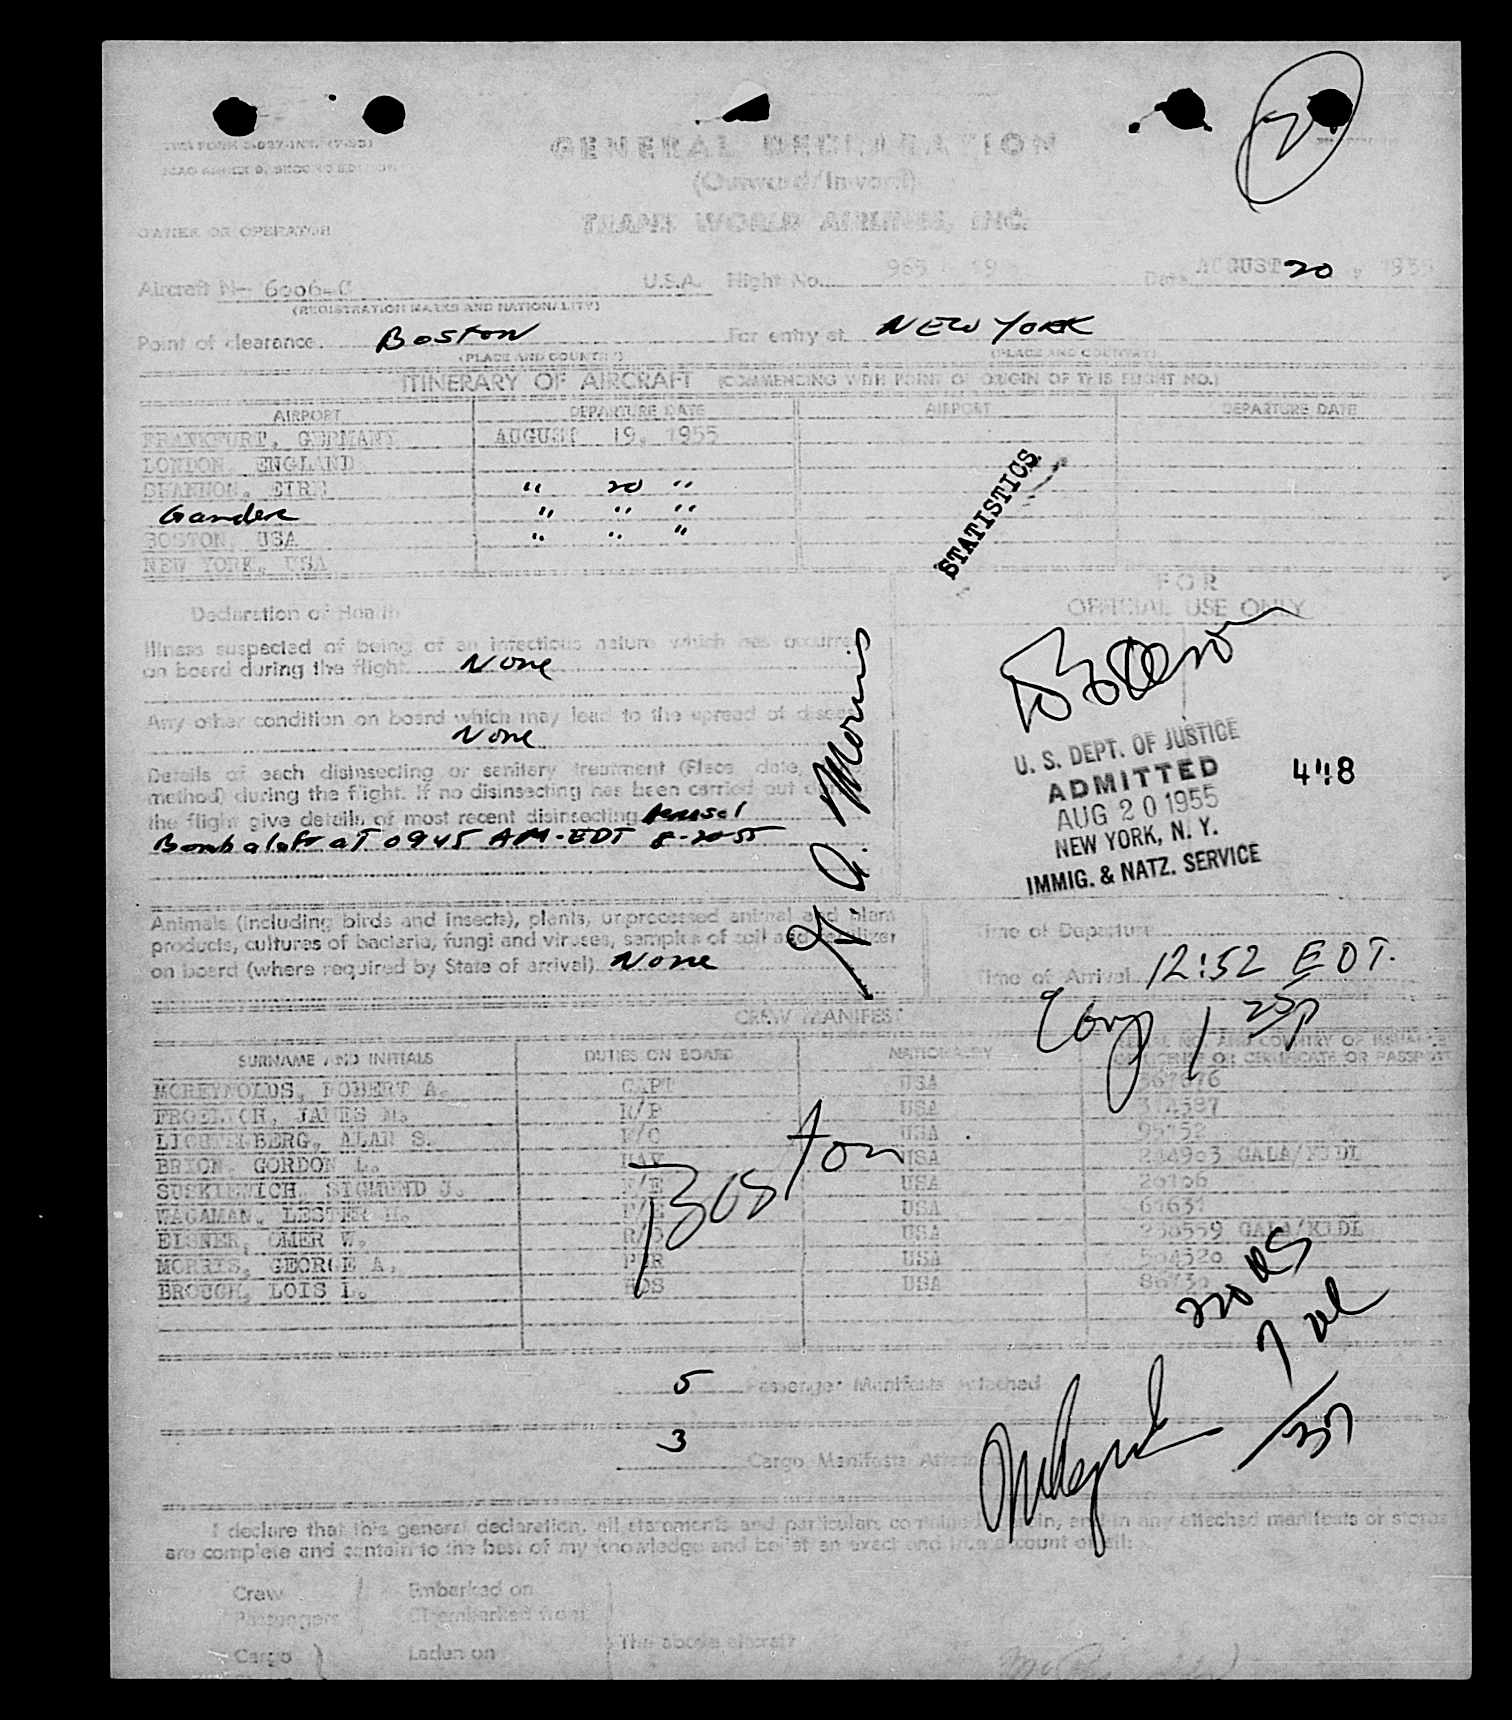 GENERAL DECLARATION
(Outward/Inward)
TRANS WORLD AIRLINES, INC.
OWNER OR OPERATOR
Aircraft N- 6006-C U.S.A. Flight No. 965 Date AUGUST 20, 1955
(REGISTRATION MARKS AND NATIONALITY)
Point of clearance Boston For entry at NEW YORK
(PLACE AND COUNTRY) (PLACE AND COUNTRY)
ITINERARY OF AIRCRAFT (COMMENCING WITH POINT OF ORIGIN OF THIS FLIGHT NO.)
AIRPORT DEPARTURE DATE AIRPORT DEPARTURE DATE
FRANKFURT, GERMANY AUGUST 19, 1955
LONDON, ENGLAND
SHANNON, EIRE " 20 "
Gander " " "
BOSTON, USA " " "
NEW YORK, USA
STATISTICS
FOR
OFFICIAL USE ONLY
Declaration of Health
Illness suspected of being of an infectious nature which has occurred
on board during the flight None
Any other condition on board which may lead to the spread of disease
None
Details of each disinsecting or sanitary treatment (Place, date,
method) during the flight. If no disinsecting has been carried out during
the flight give details of most recent disinsecting Aerosol
Bomb at 0945 AM-EDT 8-20-55
G. A. Morris
Boston
U. S. DEPT. OF JUSTICE
ADMITTED
AUG 20 1955
NEW YORK, N. Y.
IMMIG. & NATZ. SERVICE
Animals (including birds and insects), plants, unprocessed animal and plant
products, cultures of bacteria, fungi and viruses, samples of soil and fertilizer
on board (where required by State of arrival) None
Time of Departure
Time of Arrival 12:52 EDT.
CREW MANIFEST
SURNAME AND INITIALS DUTIES ON BOARD NATIONALITY SERIAL NO. AND COUNTRY OF ISSUANCE
OF LICENSE OR CERTIFICATE OR PASSPORT
MCREYNOLDS, ROBERT A. CAPT USA
FROELICH, JAMES M. R/P USA
LICHTENBERG, ALAN S. F/O USA 95152
BRION, GORDON L. NAV USA GALA/KJDL
SUSKIEWICH, SIGMUND J. F/E USA
WAGAMAN, LESTER H. F/E USA
EISNER, OMER W. R/O USA GALA/KJDL
MORRIS, GEORGE A. PUR USA
BROUGH, LOIS L. HOS USA
Boston
5 Passenger Manifests Attached
3 Cargo Manifests Attached
I declare that this general declaration, all statements and particulars contained herein, and in any attached manifests or stores
are complete and contain to the best of my knowledge and belief an exact and true account of all:
Crew Embarked on
Passengers Disembarked from
The above aircraft
Cargo Laden on